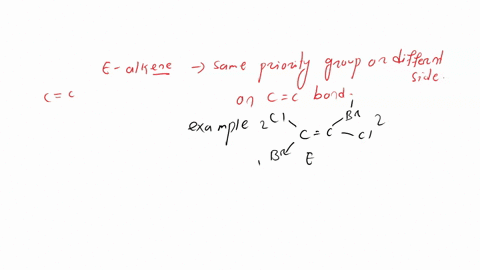 E-alkene → same priority group on different
side.
C=C
on C=C bond.
1
example 2 Cl Br 2
C=C
Cl
1 Br E